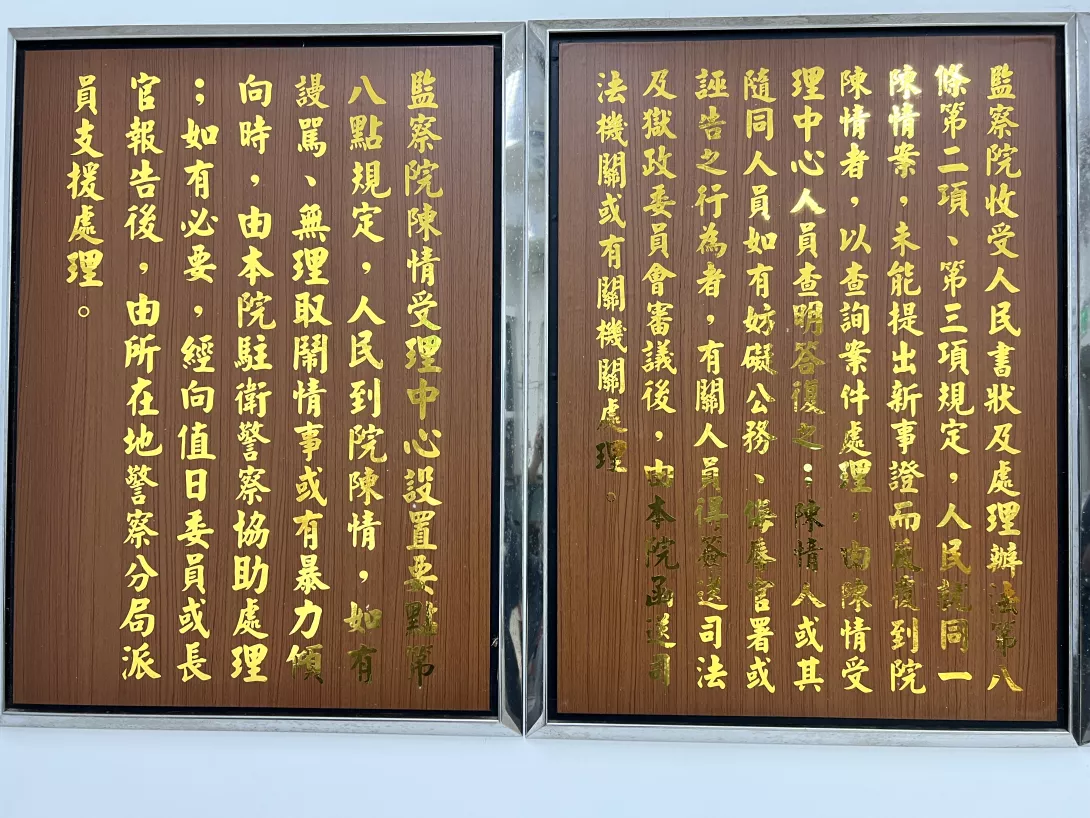 監察院收受人民書狀及處理辦法第八
條第二項、第三項規定，人民就同一
陳情案，未能提出新事證而屢復到院
陳情者，以查詢案件處理，由陳情受
理中心人員查明答復之；陳情人或其
隨同人員如有妨礙公務、侮辱官署或
誣告之行為者，有關人員得簽送司法
及獄政委員會審議後，由本院函送司
法機關或有關機關處理。
監察院陳情受理中心設置要點第
八點規定，人民到院陳情，如有
謾罵、無理取鬧情事或有暴力傾
向時，由本院駐衛警察協助處理
；如有必要，經向值日委員或長
官報告後，由所在地警察分局派
員支援處理。